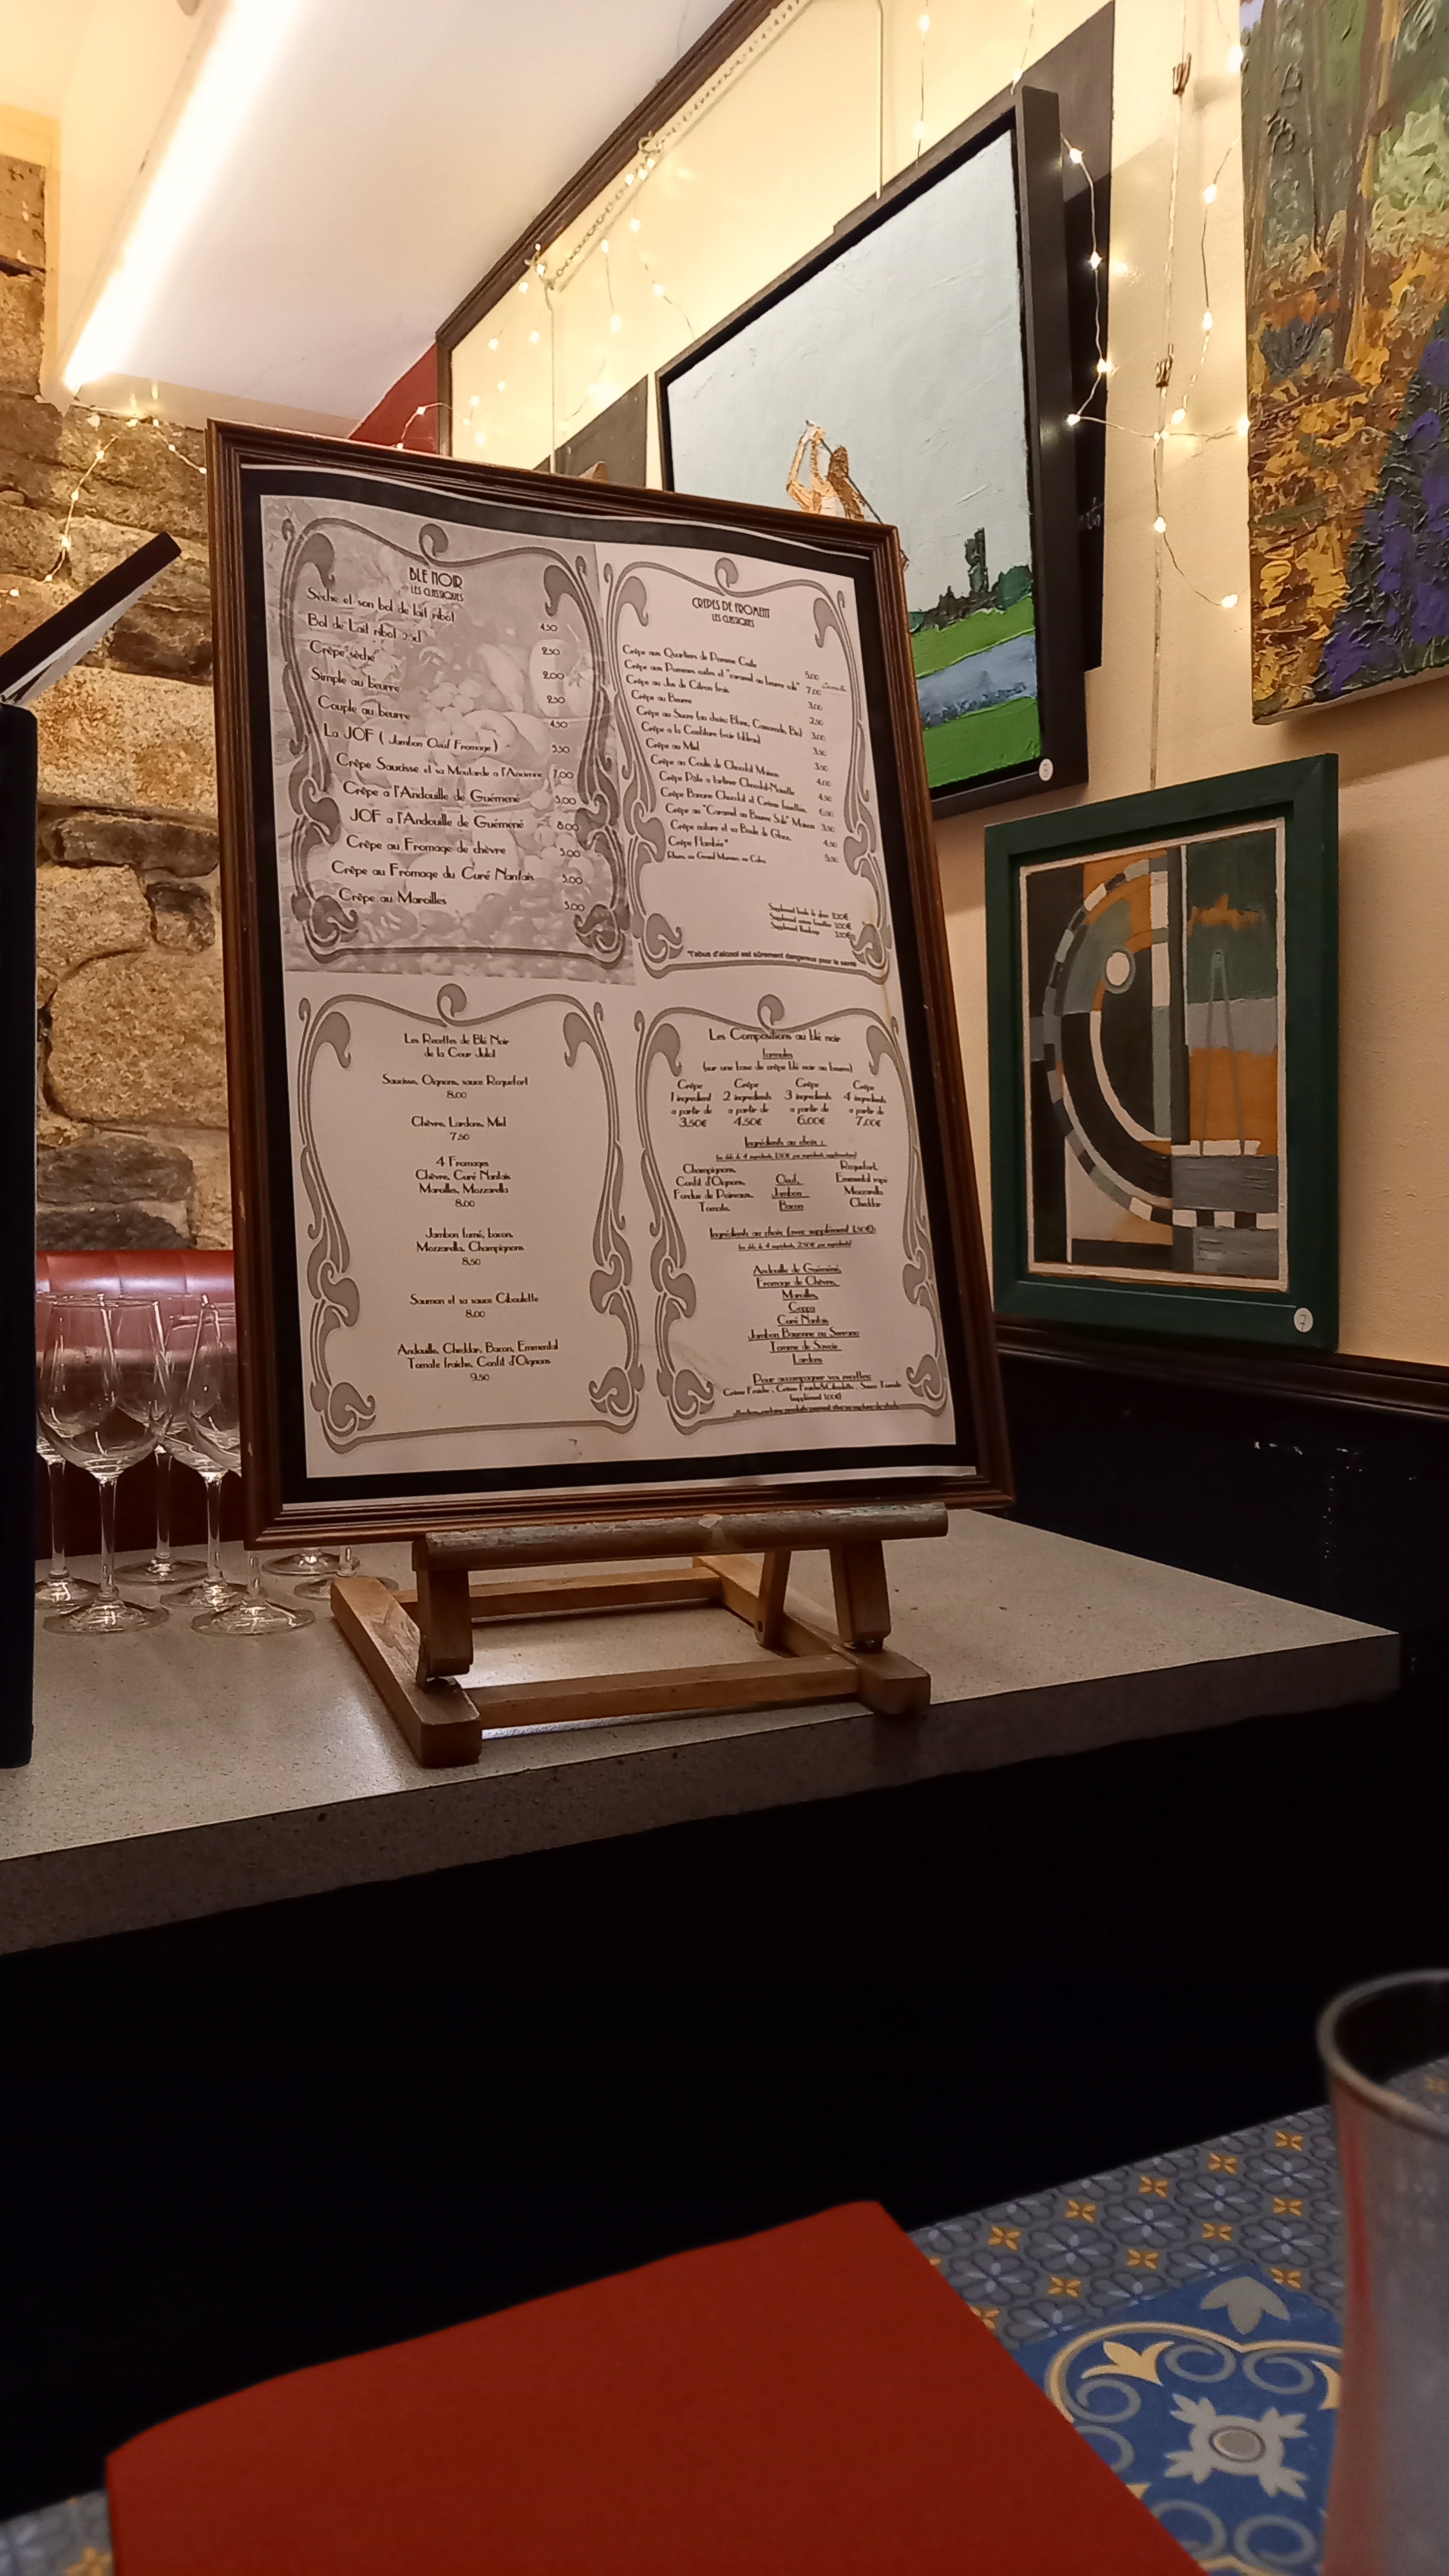 BLE NOIR
LES CLASSIQUES
Sèche et son bol de lait ribot 4.50
Bol de Lait ribot 2.50
Crêpe sèche 2.00
Simple au beurre 2.50
Couple au beurre 4.50
La JOF ( Jambon Oeuf Fromage ) 5.50
Crêpe Saucisse et sa Moutarde a l'Ancienne 7.00
Crêpe a l'Andouille de Guémené 5.00
JOF a l'Andouille de Guémené 8.00
Crêpe au Fromage de chèvre 5.00
Crêpe au Fromage du Curé Nantais 5.00
Crêpe au Maroilles 5.00
CREPES DE FROMENT
LES CLASSIQUES
Crêpe aux Quartiers de Pomme Cuite 5.00
Crêpe aux Pommes cuites et "caramel au beurre salé" 7.00
Crêpe au Jus de Citron frais 3.00
Crêpe au Beurre 2.50
Crêpe au Sucre (au choix: Blanc, Cassonade, Bio) 3.00
Crêpe a la Confiture (voir tableau) 3.50
Crêpe au Miel 3.50
Crêpe au Coulis de Chocolat Maison 4.00
Crêpe Pâte a tartiner Chocolat-Noisette 4.50
Crêpe Banane Chocolat et Crème fouettée 6.50
Crêpe au "Caramel au Beurre Salé" Maison 3.50
Crêpe nature et sa Boule de Glace 4.50
Crêpe Flambée* 5.50
Rhum, ou Grand Marnier, ou Calva
Supplément boule de glace 2.50€
Supplément crème fouettée 1.00€
Supplément flambage
*l'abus d'alcool est sûrement dangereux pour la santé
Les Recettes de Blé Noir
de la Cour Julot
Saucisse, Oignons, sauce Roquefort
8.00
Chèvre, Lardons, Miel
7.50
4 Fromages
Chèvre, Curé Nantais
Maroilles, Mozzarella
8.00
Jambon fumé, bacon,
Mozzarella, Champignons
8.50
Saumon et sa sauce Ciboulette
8.00
Andouille, Cheddar, Bacon, Emmental
Tomate fraiche, Confit d'Oignons
9.50
Les Compositions au blé noir
formules
(sur une base de crêpe blé noir au beurre)
Crêpe Crêpe Crêpe Crêpe
1 ingrédient 2 ingrédients 3 ingrédients 4 ingrédients
a partir de a partir de a partir de a partir de
3.50€ 4.50€ 6.00€ 7.00€
Ingrédients au choix :
Champignons, Roquefort,
Confit d'Oignons, Oeuf, Emmental rapé
Fondue de Poireaux, Jambon Mozzarella
Tomate, Bacon Cheddar
Ingrédients au choix (avec supplément 1.50€):
Andouille de Guémené,
Fromage de Chèvre,
Maroilles,
Coppa
Curé Nantais
Jambon Bayonne ou Serrano
Tomme de Savoie
Lardons
Pour accompagner vos recettes:
Crème Fraiche, Crème Fraiche/Ciboulette, Sauce Tomate
(supplément 1.00€)
5
7